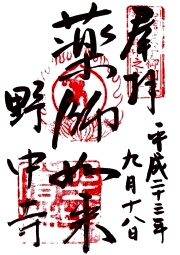 奉拝
平成二十三年
九月十八日
薬師如来
野中寺